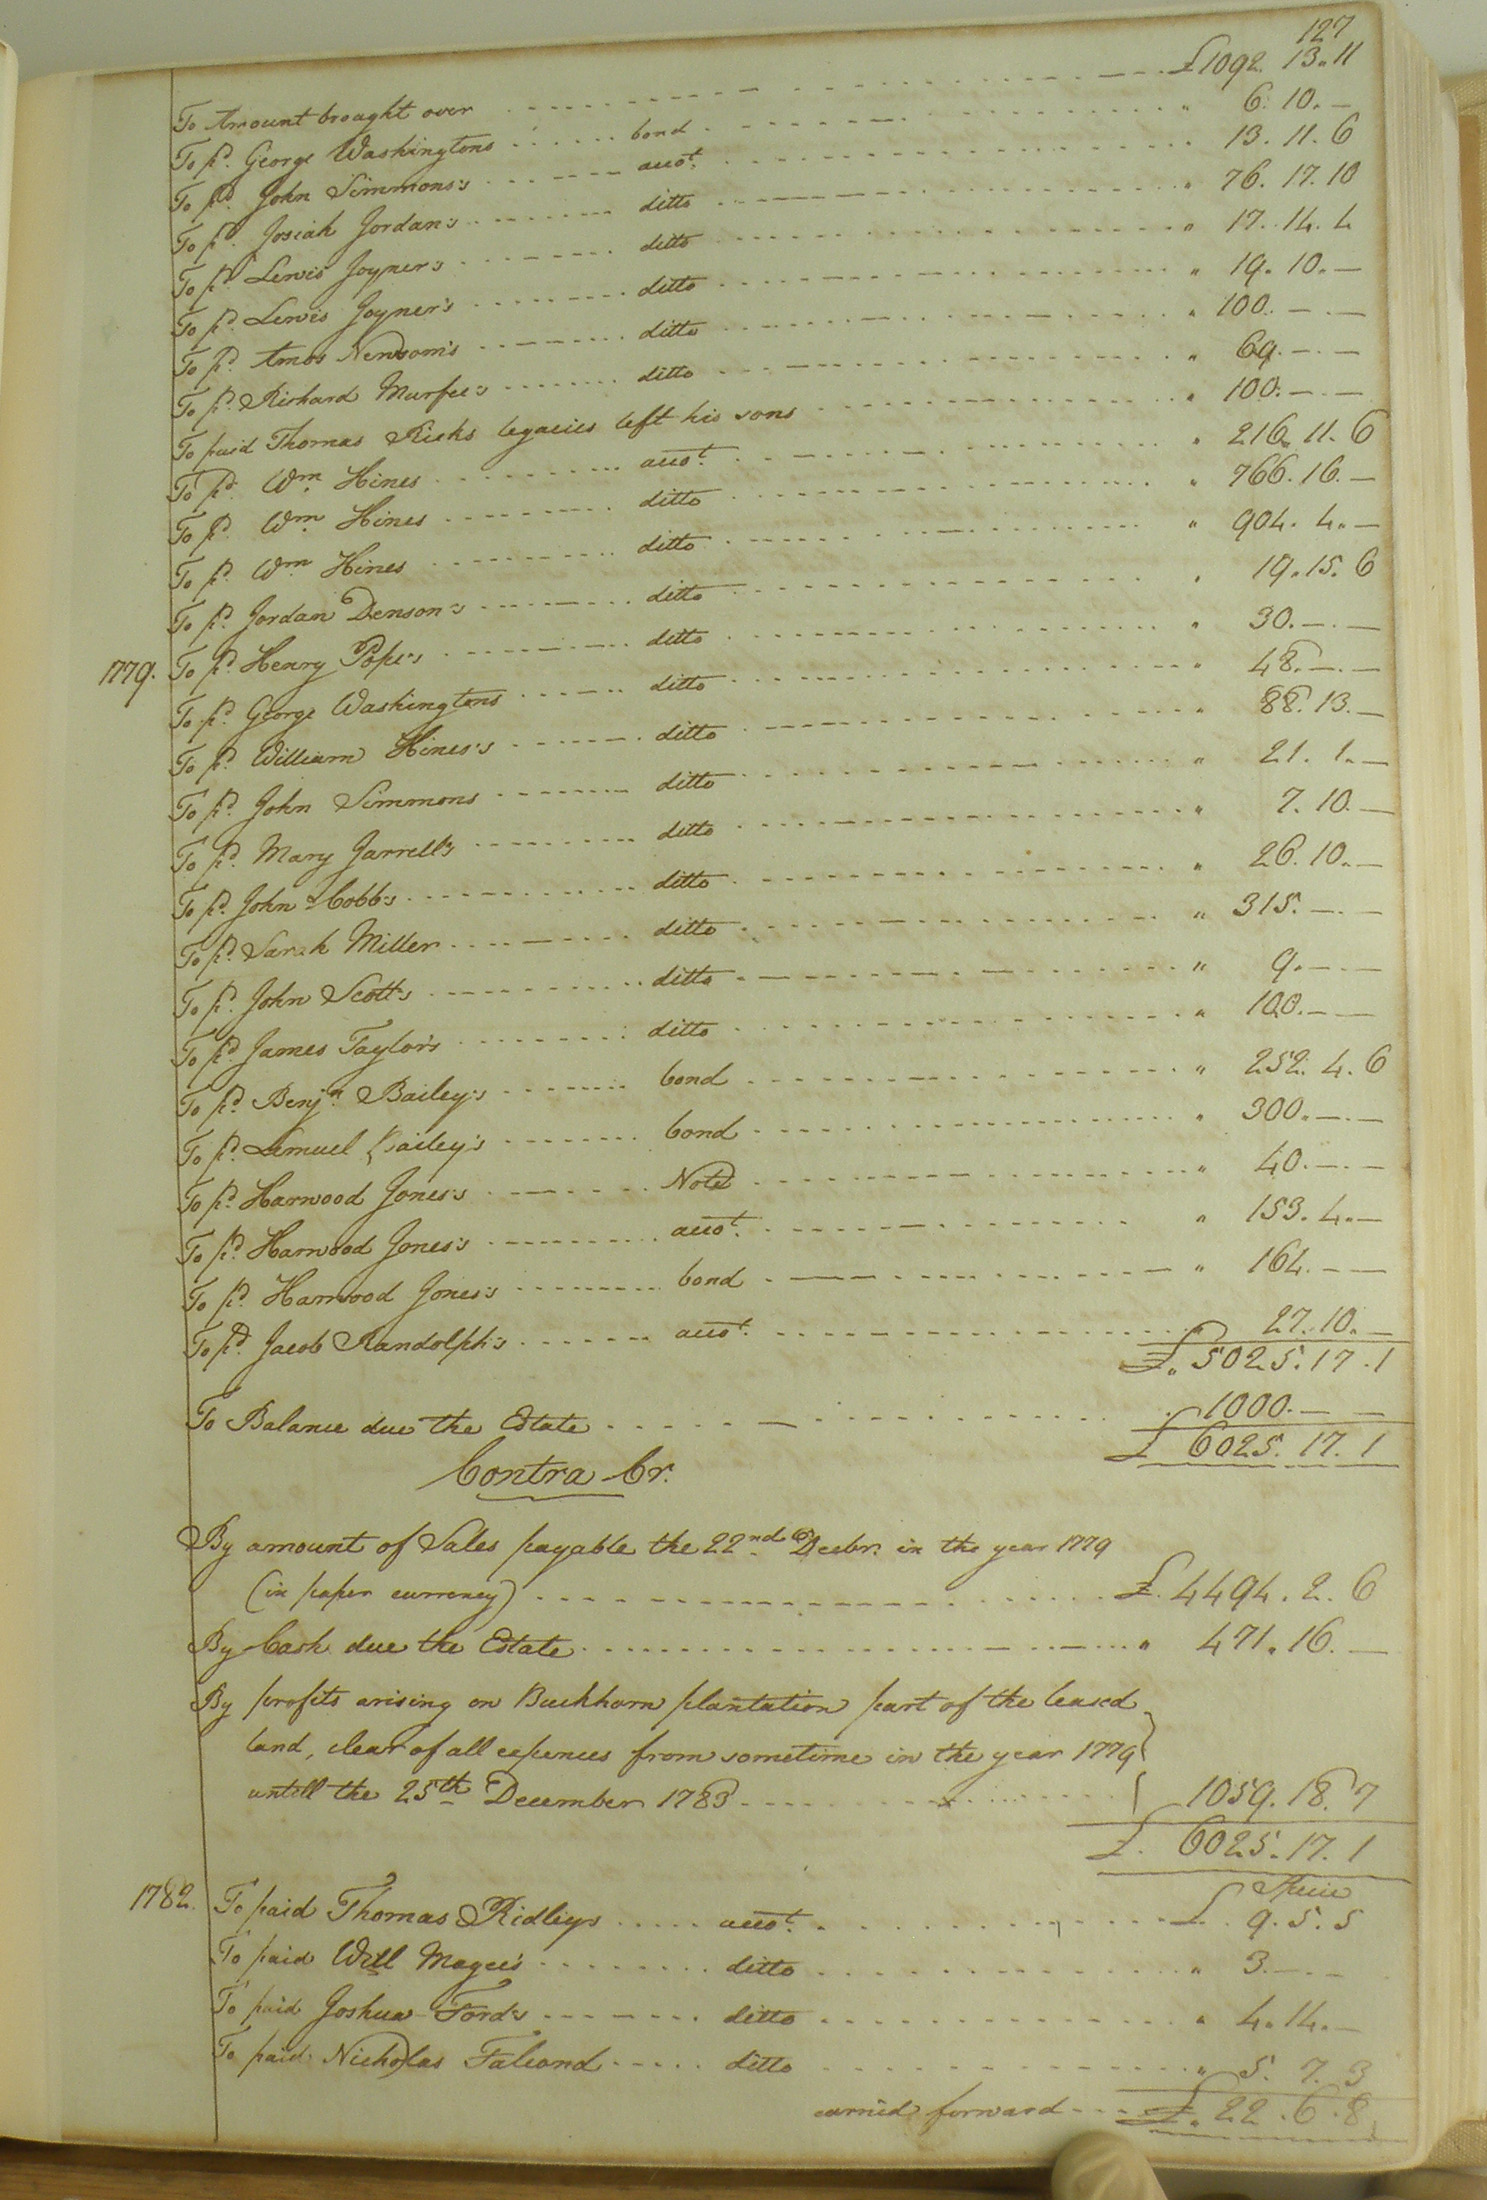 127
To Amount brought over £1092. 13. 11
To pd. George Washingtons bond " 6. 10. —
To pd. John Simmons's acco.t " 13. 11. 6
To pd. Josiah Jordan's ditto " 76. 17. 10
To pd. Lewis Joyner's ditto " 17. 14. 4
To pd. Lewis Joyner's ditto " 19. 10. —
To pd. Amos Newsom's ditto " 100. — . —
To pd. Richard Murfee's ditto " 69. — . —
To paid Thomas Ricks legacies left his sons " 100. — . —
To pd. Wm. Hines acco.t " 216. 11. 6
To pd. Wm. Hines ditto " 766. 16. —
To pd. Wm. Hines ditto " 904. 4. —
To pd. Jordan Denson's ditto " 19. 15. 6
1779. To pd. Henry Pope's ditto " 30. — . —
To pd. George Washingtons ditto " 48. — . —
To pd. William Hines's ditto " 88. 13. —
To pd. John Simmons ditto " 21. 1. —
To pd. Mary Jarrell's ditto " 7. 10. —
To pd. John Cobb's ditto " 26. 10. —
To pd. Sarah Miller ditto " 315. — . —
To pd. John Scott's ditto " 9. — . —
To pd. James Taylor's ditto " 100. — . —
To pd. Benjn. Bailey's bond " 252. 4. 6
To pd. Lemuel Bailey's bond " 300. — . —
To pd. Harwood Jones's Note " 40. — . —
To pd. Harwood Jones's acco.t " 153. 4. —
To pd. Harwood Jones's bond " 164. — —
To pd. Jacob Randolph's acco.t " 27. 10. —
£. 5025. 17. 1
To Balance due the Estate 1000. — —
£ 6025. 17. 1
Contra Cr.
By amount of Sales payable the 22nd. Decbr. in the year 1779
(in paper currency) £. 4494. 2. 6
By Cash due the Estate " 471. 16. —
By profits arising on Buckhorn plantation part of the leased
land, clear of all expences from sometime in the year 1779
untill the 25th December 1783 1059. 18. 7
£. 6025. 17. 1
Specie
1782. To paid Thomas Ridleys acco.t £. 9. 5. 5
To paid Will Magee's ditto " 3. — . —
To paid Joshua Ford's ditto " 4. 14. —
To paid Nicholas Falcond ditto " 5. 7. 3
carried forward £. 22. 6. 8